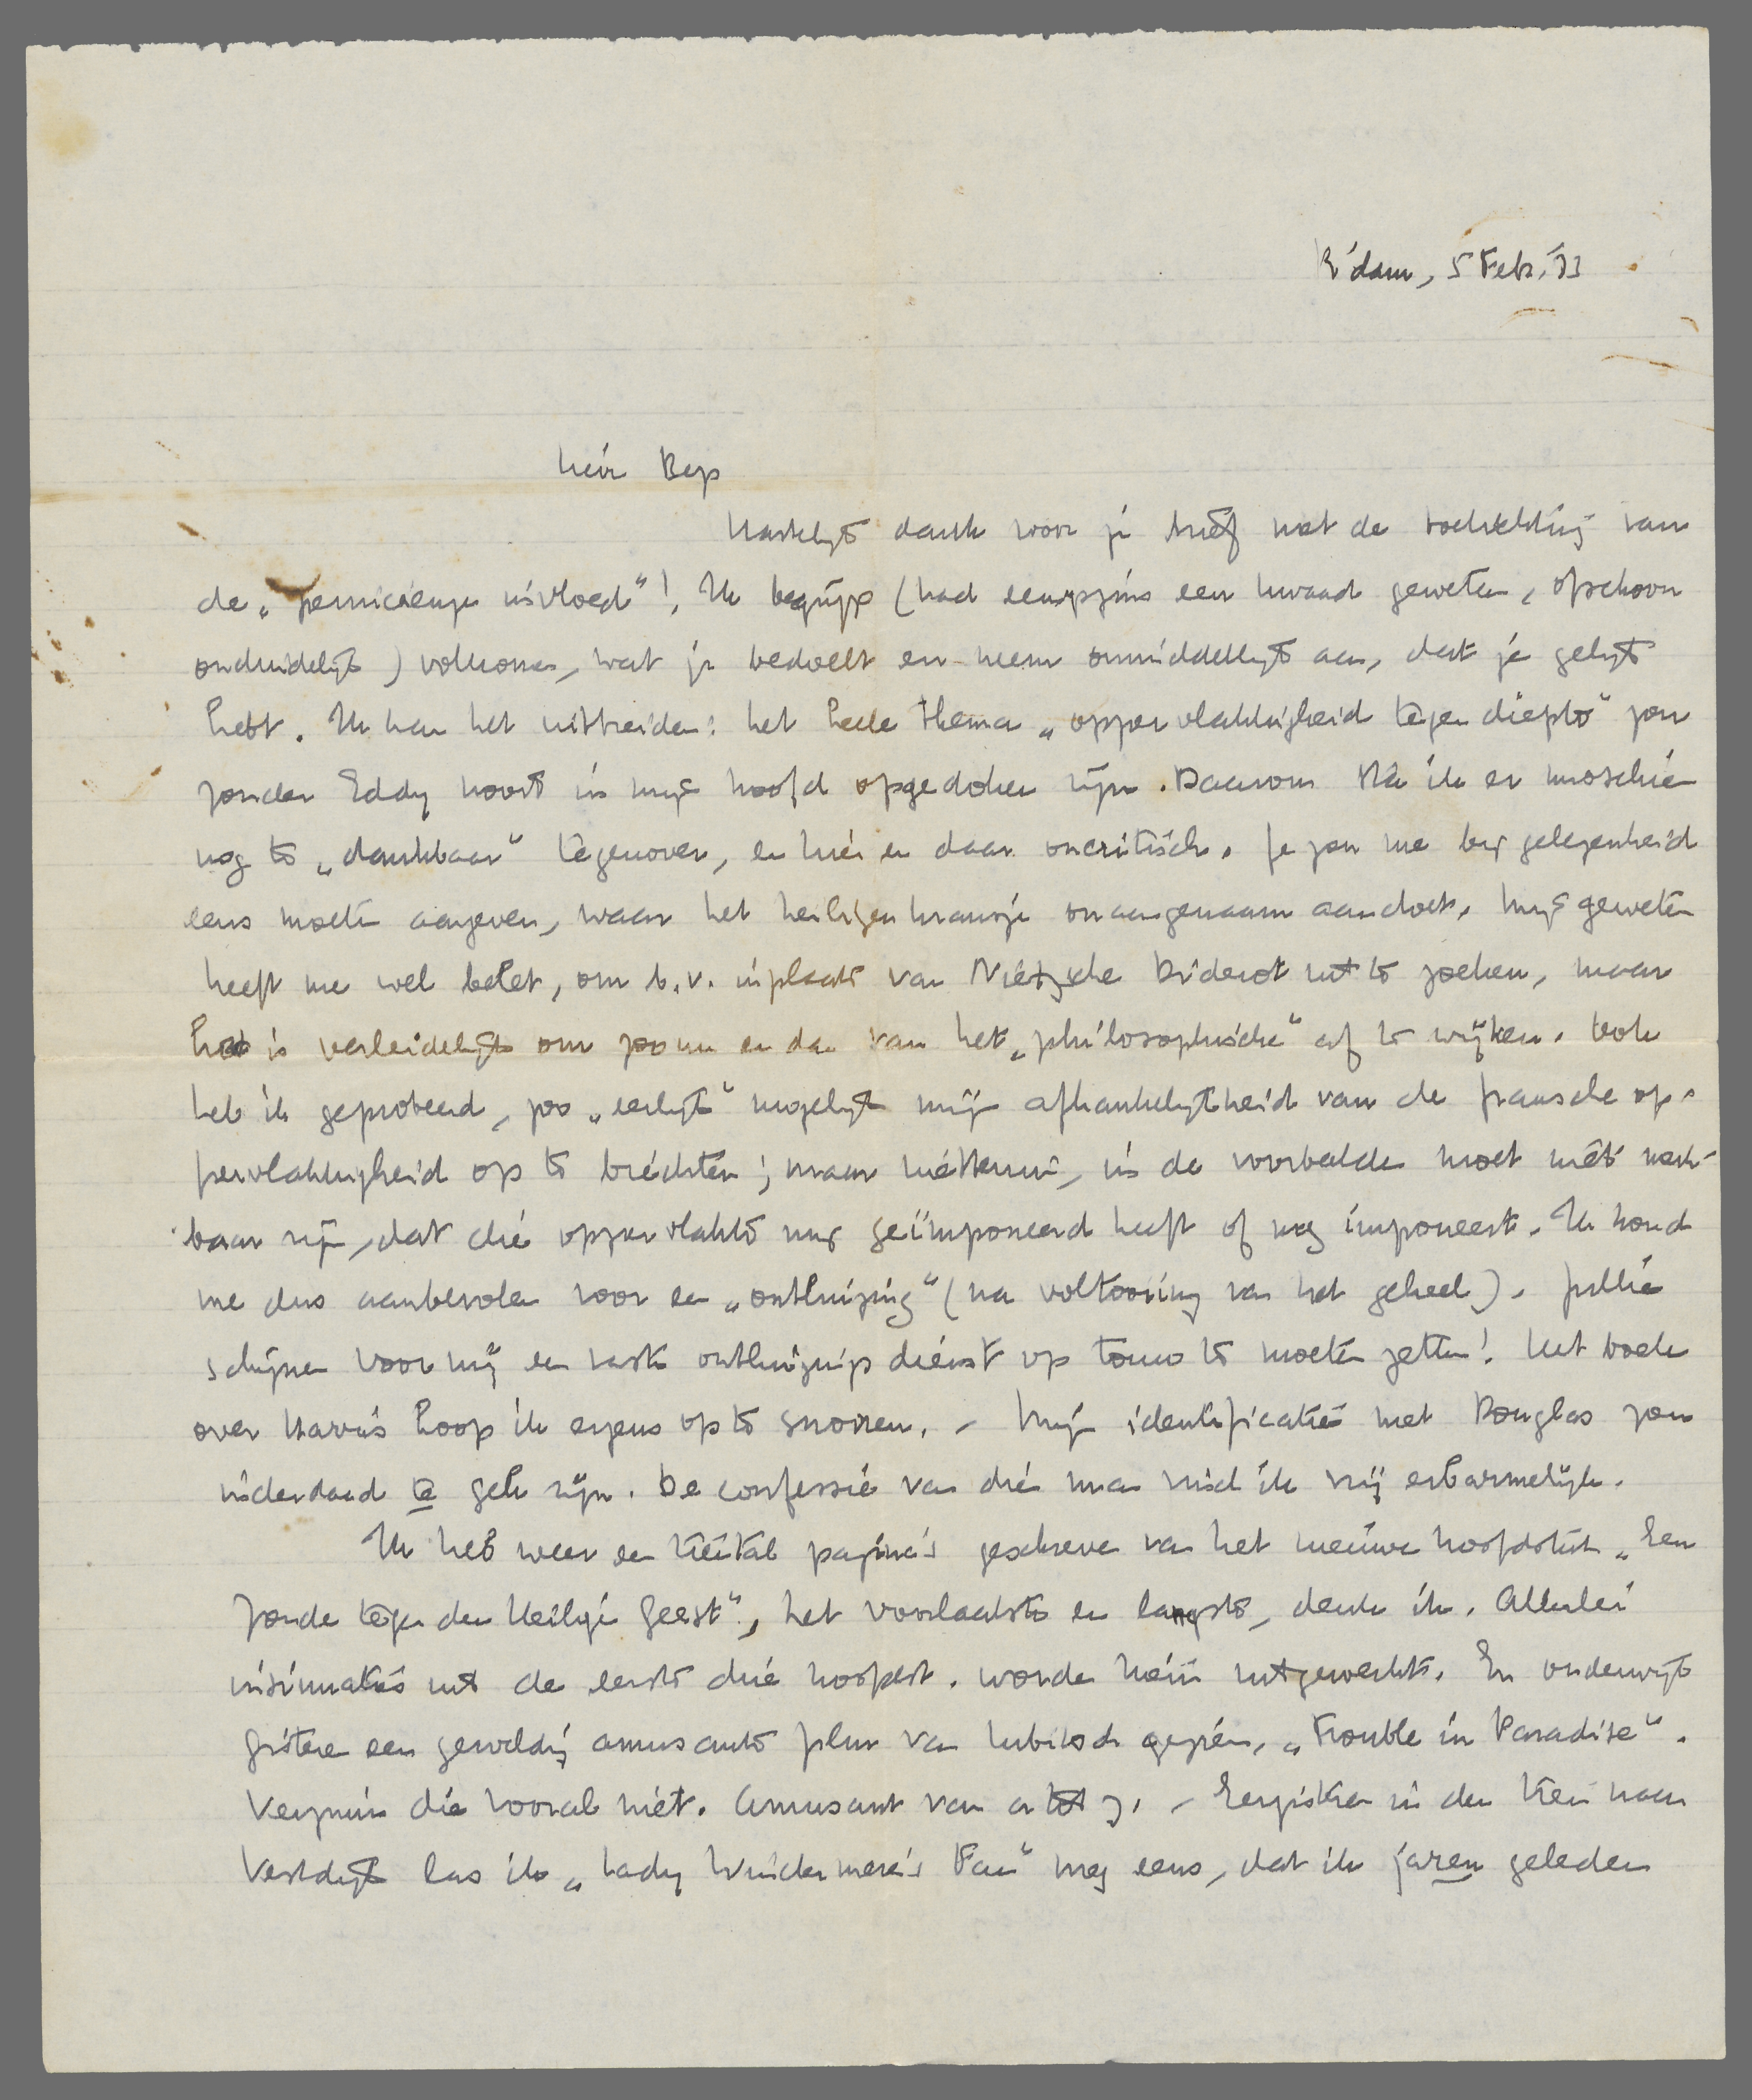 R'dam, 5 Febr. '33
Lieve Bep
Hartelijk dank voor je brief met de toelichting van
de „pernicieuze invloed"! Ik begrijp (had eenigszins een kwaad geweten, ofschoon
onduidelijk) volkomen, wat je bedoelt en neem onmiddellijk aan, dat je gelijk
hebt. Ik kan het uitbreiden: het heele thema „oppervlakkigheid tegen diepte" zou
zonder Eddy nooit in mijn hoofd opgedoken zijn. Daarom sta ik er misschien
nog te „dankbaar" tegenover, en hier en daar oncritisch. Je zou me bij gelegenheid
eens moeten aangeven, waar het heiligenkransje onaangenaam aandoet. Mijn geweten
heeft me wel belet, om b.v. inplaats van Nietzsche Diderot uit te zoeken, maar
het is verleidelijk om zoo nu en dan van het „philosophische" af te wijken. Ook
heb ik geprobeerd, zoo „eerlijk" mogelijk mijn afhankelijkheid van de fransche op-
pervlakkigheid op te biechten; maar niettemin, in de voorbeelden moet niet merk-
baar zijn, dat die oppervlakte mij geïmponeerd heeft of nog imponeert. Ik houd
me dus aanbevolen voor een „ontluizing" (na voltooiing van het geheel). Jullie
schijnen voor mij een vaste ontluizingsdienst op touw te moeten zetten! Het boek
over Harris hoop ik ergens op te snorren. – Mijn identificatie met Douglas zou
inderdaad te gek zijn. De confessie van die man vind ik vrij erbarmelijk.
Ik heb weer een tiental pagina's geschreven van het nieuwe hoofdstuk „Een
Zonde tegen den Heiligen Geest", het voorlaatste en langste, denk ik. Allerlei
insinuaties uit de eerste drie hoofdst. worden hierin uitgewerkt. En onderwijl
gisteren een geweldig amusante film van Lubitsch gezien, „Trouble in Paradise".
Verzuim die vooral niet. Amusant van a tot z. – Eergisteren in den trein naar
Dordrecht las ik „Lady Windermere's Fan" nog eens, dat ik jaren geleden